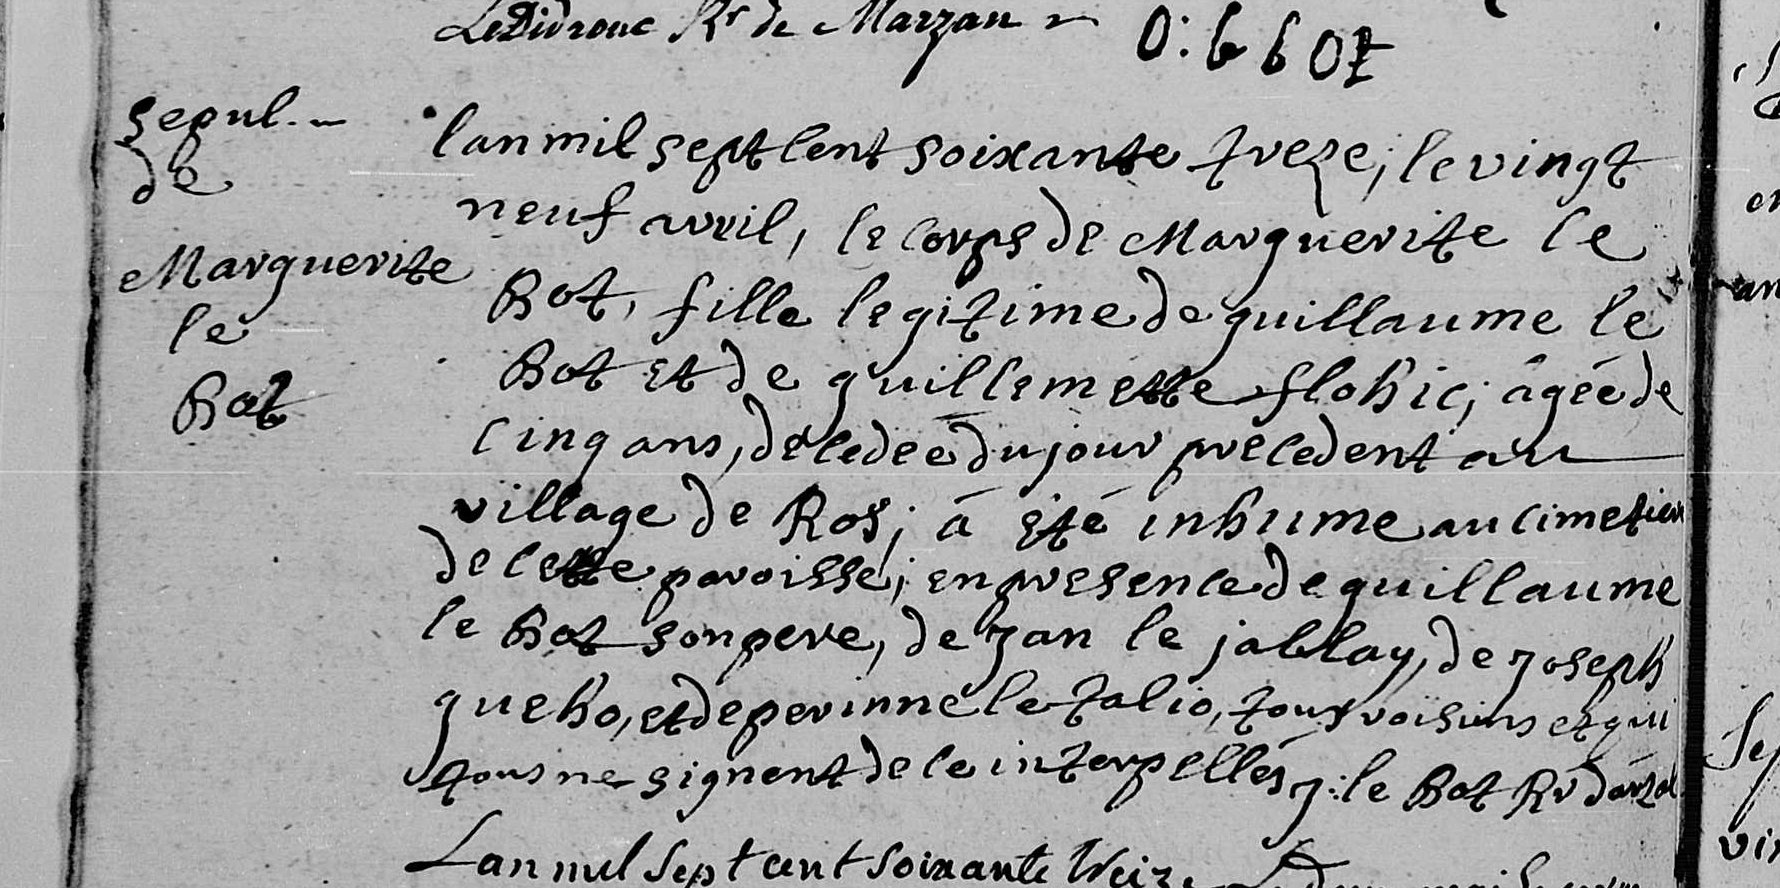 LeDidrouc Rr de Marzan
sepul.
de
Marguerite
le
Bot
lan mil sept cent soixante treze, le vingt
neuf avril, le corps de Marguerite le
Bot, fille legitime de guillaume le
Bot et de guillemette flohic, âgée de
cinq ans, décedeé du jour précedent au
village de Ros, â êté inhume au cimetiere
de cette paroisse, en presence de guillaume
le Bot son pere, de jan le jalllay, de joseph
gueho, et de perinne le talio, tous voisins et qui
tous ne signent de ce interpellés j: le Bot Rr
Lan mil sept cent soixante treize Le